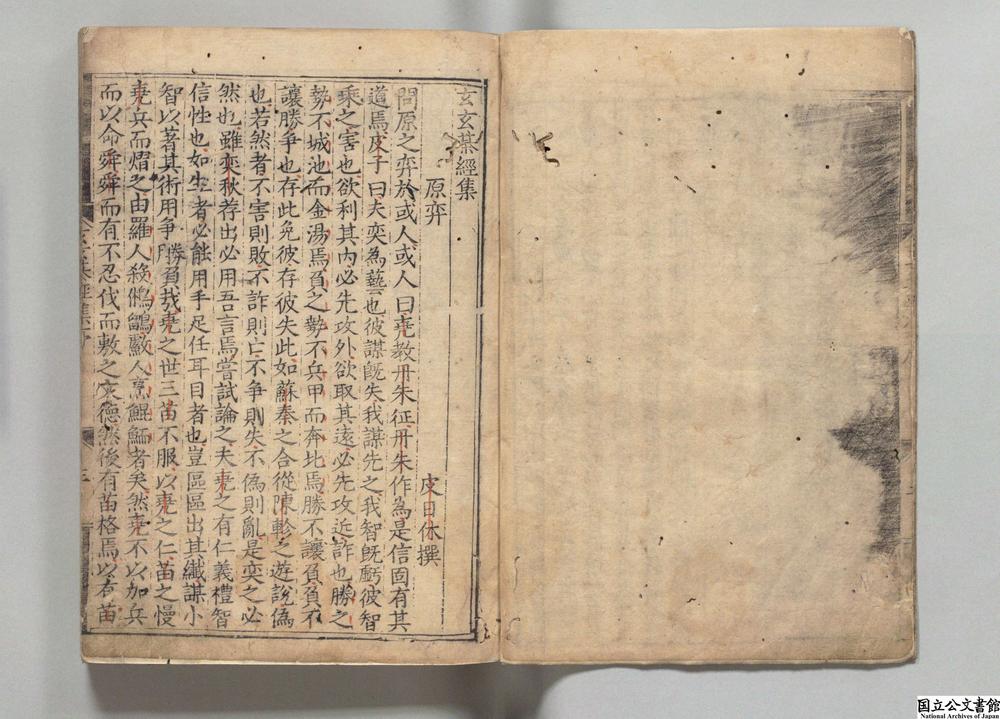 玄玄棊經集
原弈
皮日休撰
問原之弈於或人或人曰堯教丹朱征丹朱作為是信固有其
道焉皮子曰夫奕為藝也彼謀旣失我謀先之我智旣虧彼智
乘之害也欲利其內必先攻外欲取其遠必先攻近詐也勝之
勢不城池而金湯焉負之勢不兵甲而奔北焉勝不讓負負不
讓勝爭也存此免彼存彼失此如蘇秦之合從陳軫之遊說僞
也若然者不害則敗不詐則亡不爭則失不僞則亂是奕之必
然也雖奕秋荐出必用吾言焉嘗試論之夫堯之有仁義禮智
信性也如生者必能用手足任耳目者也豈區區出其纖謀小
智以著其術用爭勝負哉堯之世三苗不服以堯之仁苗之慢
堯兵而熠之由羅人殺鴆獻人烹鯤鮞者矣然堯不以加兵
而以命舜舜而有不忍伐而敷之文德然後有苗格焉以有苗
国立公文書館
National Archives of Japan